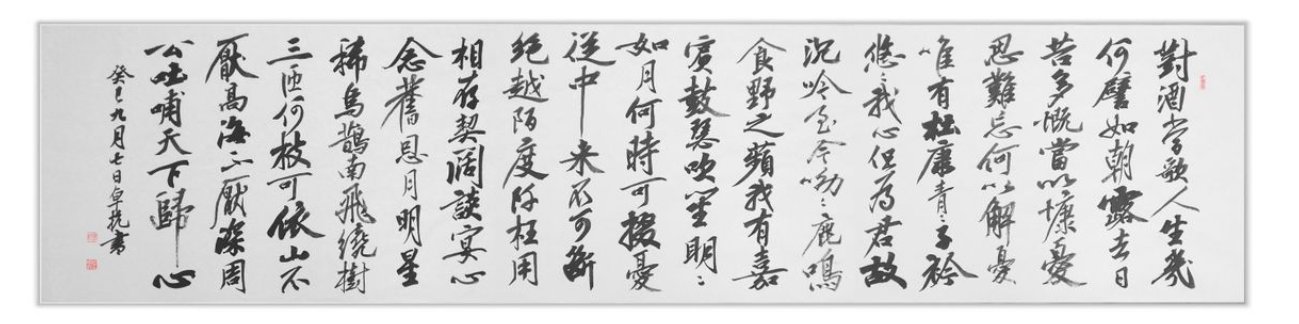 對酒當歌人生幾
何譬如朝露去日
苦多慨當以慷憂
思難忘何以解憂
唯有杜康青〻子衿
悠〻我心但為君故
沉吟至今呦〻鹿鳴
食野之蘋我有嘉
賓鼓瑟吹笙明〻
如月何時可掇憂
從中来不可斷
絕越陌度阡枉用
相存契闊談宴心
念舊恩月明星
稀烏鵲南飛繞樹
三匝何枝可依山不
厭高海不厭深周
公吐哺天下歸心
癸巳九月七日卓書